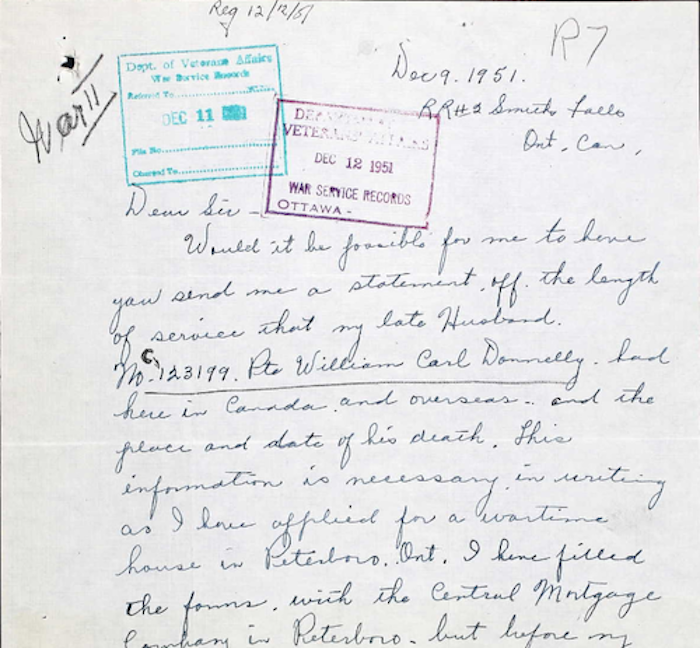 Reg 12/12/51
R7
War II
Dept. of Veterans Affairs
War Service Records
Referred To
DEC 11
File No.
Charged To
DEPARTMENT OF
VETERANS AFFAIRS
DEC 12 1951
WAR SERVICE RECORDS
OTTAWA -
Dec 9. 1951.
RR#2 Smiths Falls
Ont. Can.
Dear Sir -
Would it be possible for me to have
you send me a statement, off the length
of service that my late Husband.
No. C 123199. Pte William Carl Donnelly. had
here in Canada and overseas - and the
place and date of his death. This
information is necessary in writing
as I have applied for a wartime
house in Peterboro. Ont. I have filled
the forms, with the Central Mortgage
Company in Peterboro - but before my